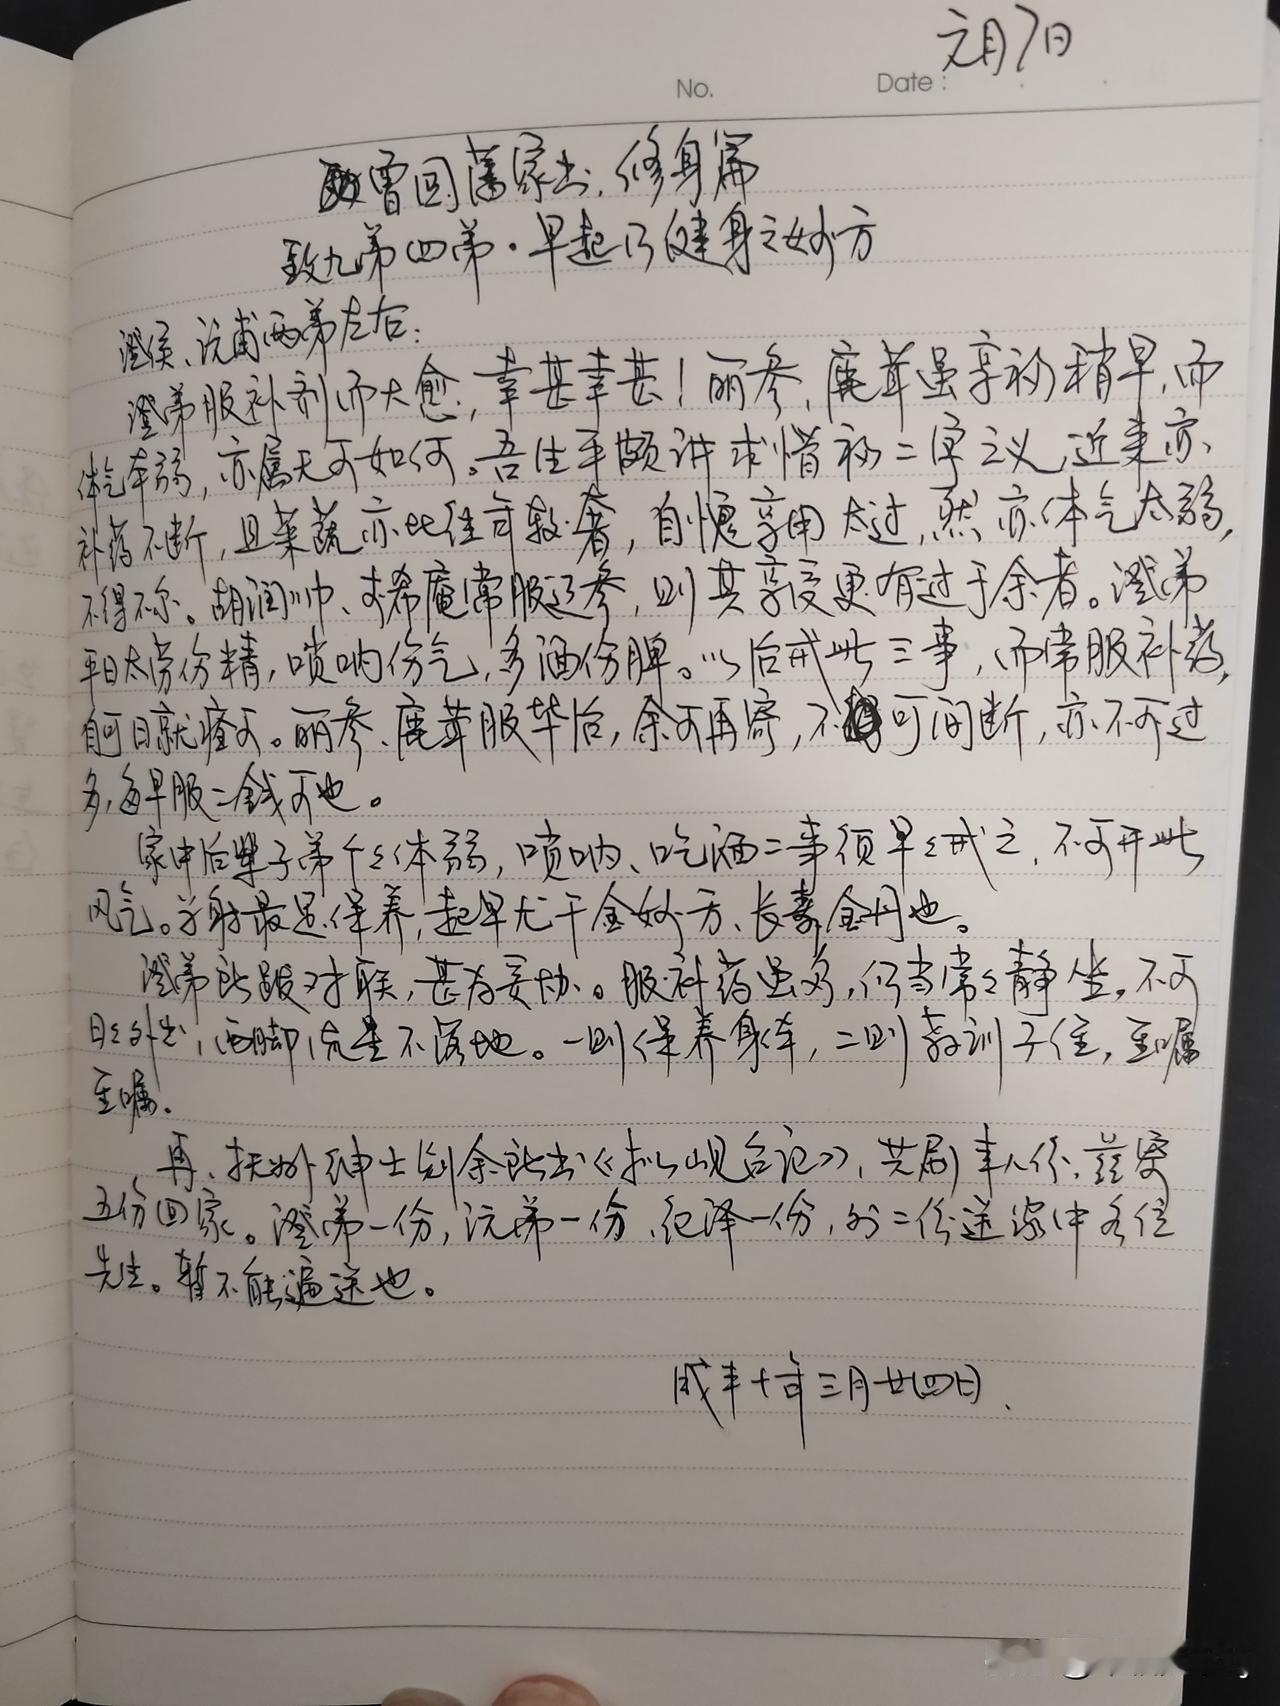 元月7日
No.
Date:
曾国藩家书,修身篇
致九弟四弟·早起乃健身之妙方
澄侯、沅甫两弟左右:
澄弟服补剂而大愈,幸甚幸甚!丽参、鹿茸虽享初稍早,而
体气本弱,亦属无可如何。吾生平颇讲求惜初二字之义,近来亦
补药不断,且菜蔬亦比往年较奢,自愧享用太过,然亦体气太弱,
不得不尔。胡润帅、李希庵常服辽参,则其享受更有过于余者。澄弟
平日太劳伤精,唢呐伤气,多酒伤脾。以后戒此三事,而常服补药,
自可日就痊可。丽参、鹿茸服毕后,余可再寄,不可间断,亦不可过
多,每早服二钱可也。
家中后辈子弟个个体弱,唢呐、吃酒二事须早早戒之,不可开此
风气。学射最足保养,起早尤千金妙方、长寿金丹也。
澄弟所跋对联,甚为妥协。服补药虽多,仍当常常静坐,不可
日日外出,两脚流星不落地。一则保养身体,二则教训子侄,至嘱
至嘱。
再,抚州绅士刻余所书《拟岘台记》,共刷来八份,兹寄
五份回家。澄弟一份,沅弟一份,纪泽一份,外二份送家中各位
先生。暂不能遍送也。
咸丰十年三月廿四日.